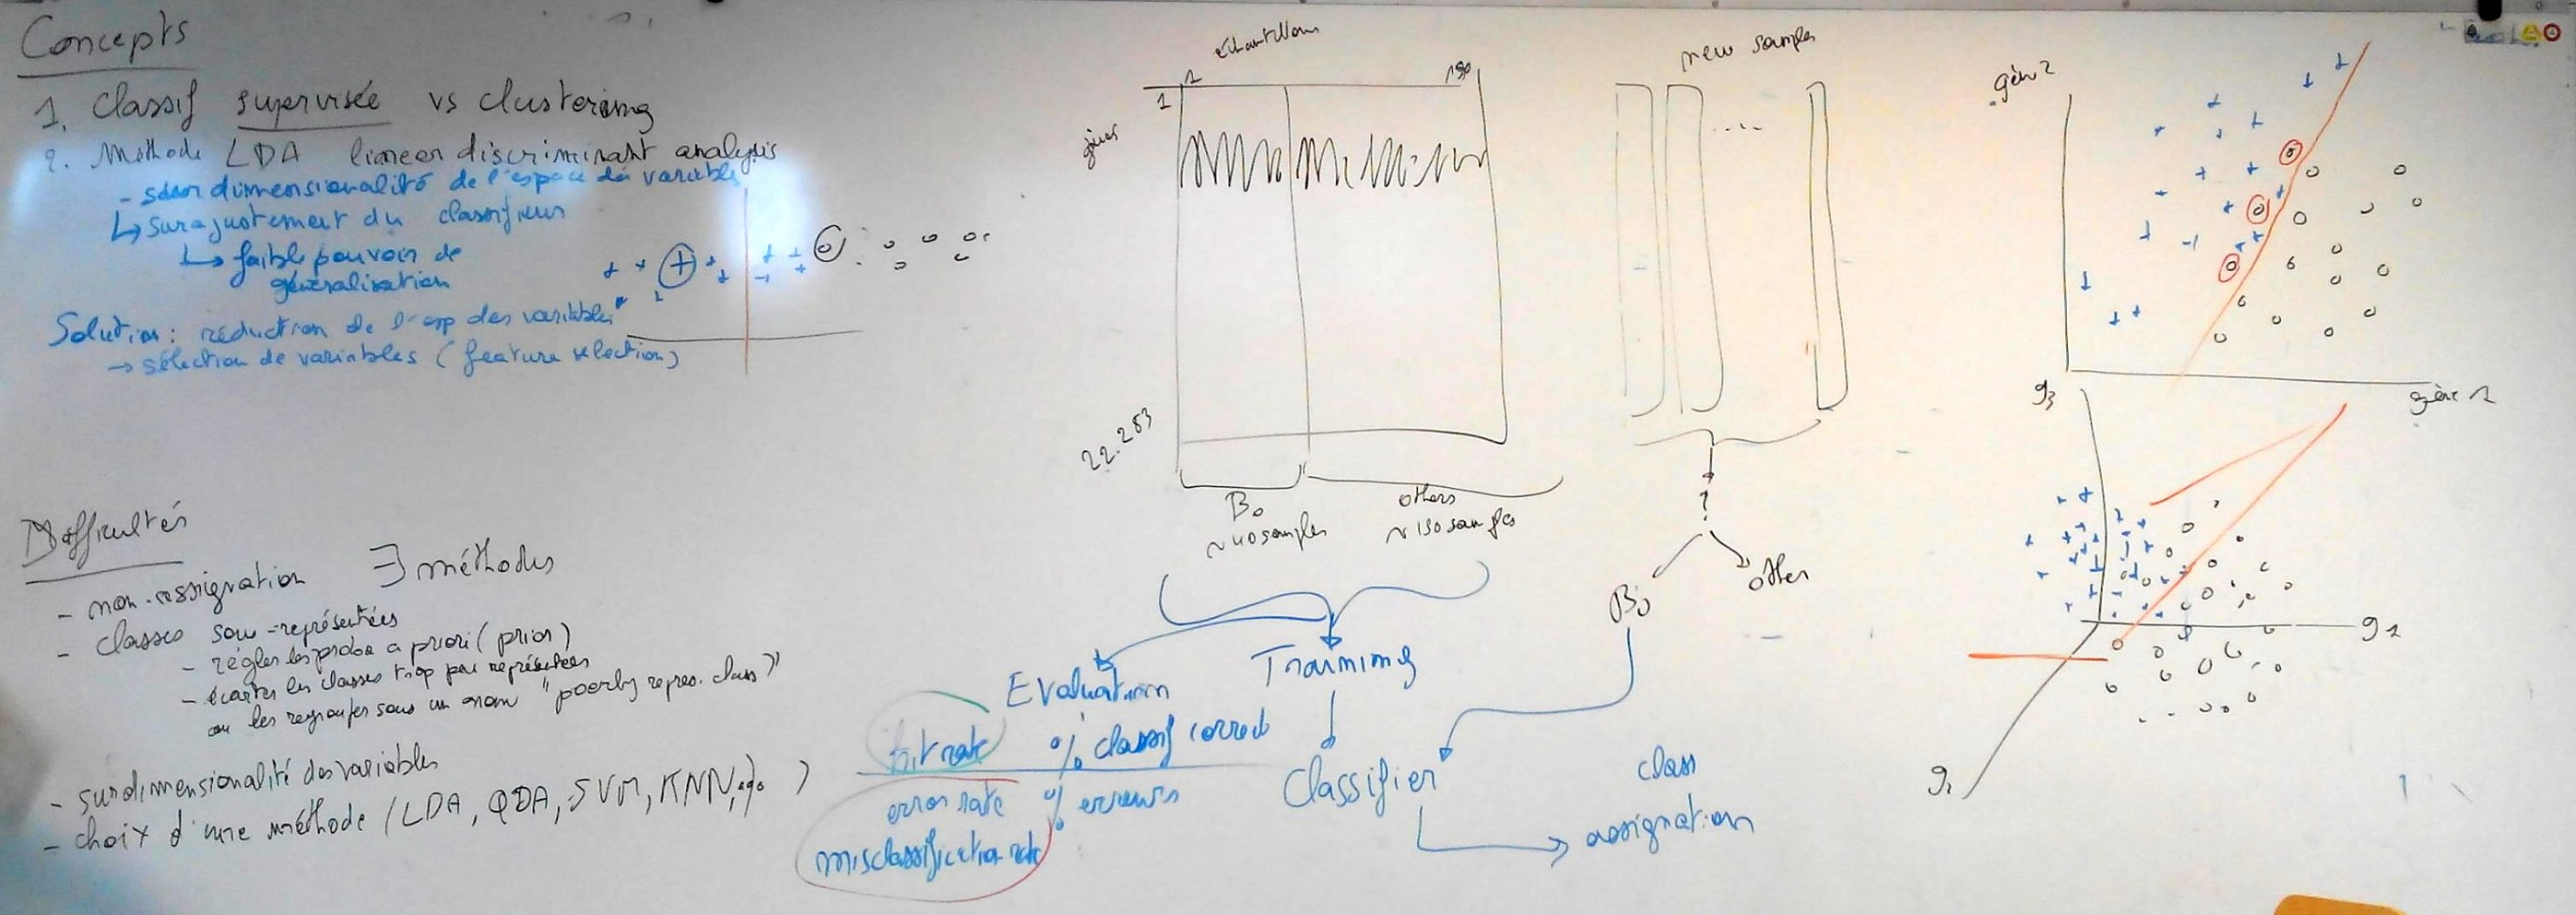 Concepts
1. Classif supervisée vs clustering
2. Méthode LDA linear discriminant analysis
- surdimensionalité de l'espace des variables
↳ surajustement du classifieur
↳ faible pouvoir de
généralisation
Solution : réduction de l'esp des variables
→ sélection de variables (feature selection)
Difficultés
- non-assignation ∃ méthodes
- classes sous-représentées
- régler les proba a priori (prior)
- écarter les classes trop peu représentées
ou les regrouper sous un nom "poorly repres. class"
- surdimensionalité des variables
- choix d'une méthode (LDA, QDA, SVM, KNN, )
échantillons
1 190
1
gènes
22.283
Bo
~40 samples
others
~150 samples
Evaluation
Training
hit rate % classif correct
error rate % erreurs
misclassification rate
Classifier
class
assignation
new samples
?
Bo
other
gène 2
gène 1
g3
g2
g1